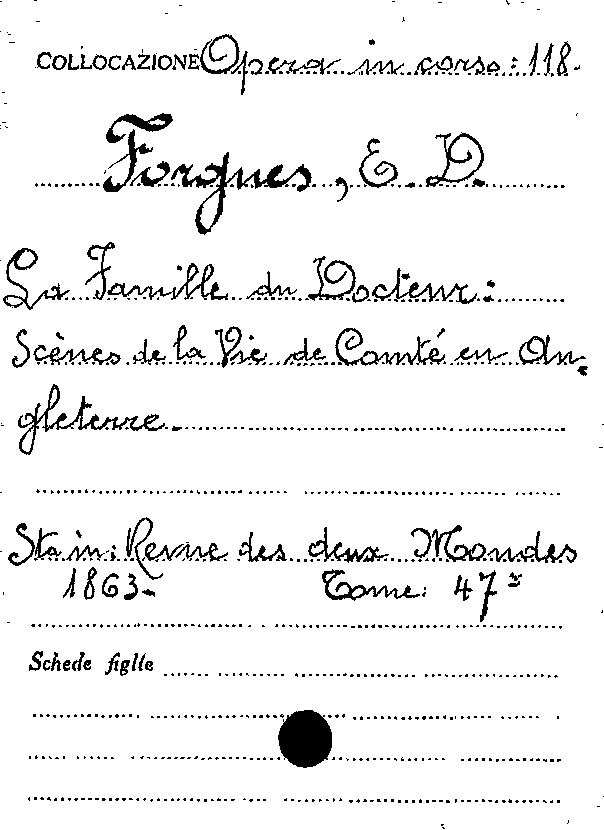 COLLOCAZIONE Opera in corso: 118.
Forgues, E. D.
La Famille du Docteur:
Scènes de la Vie de Comté en An-
gleterre.
Sta in: Revue des deux Mondes
1863- Tome: 47º
Schede figlie